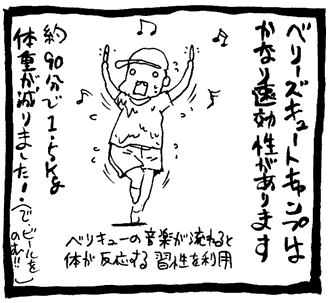 ベリーズキュートキャンプは
かなり速効性があります
ベリキューの音楽が流れると
体が反応する習性を利用
約90分で1.5kg
体重が減りました!
(で、ビールを
のむ!!)